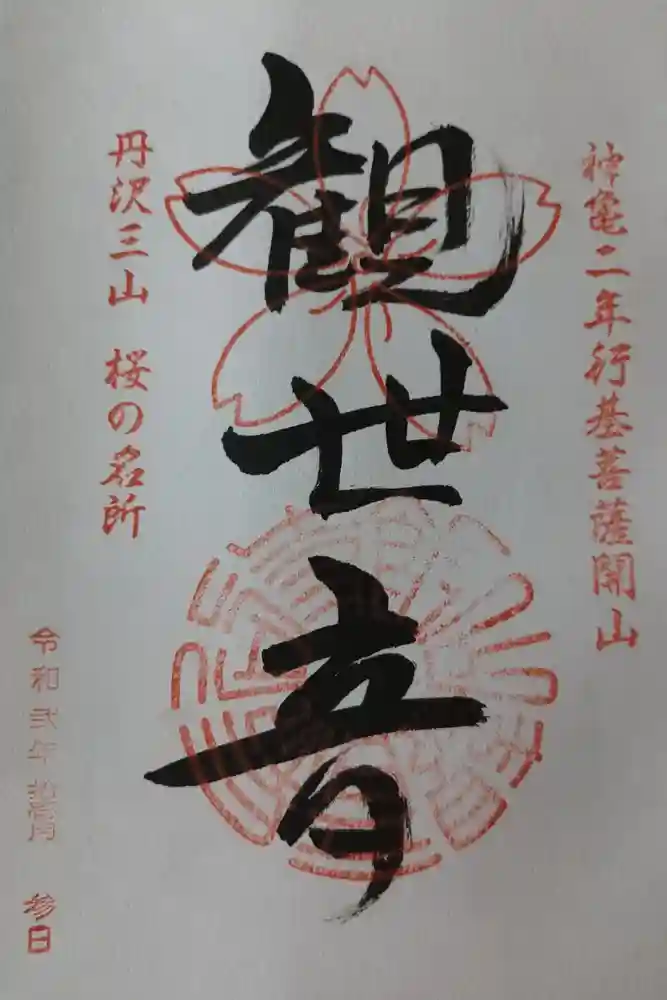 神亀二年行基菩薩開山
觀世音
丹沢三山 桜の名所
令和弐年 参日